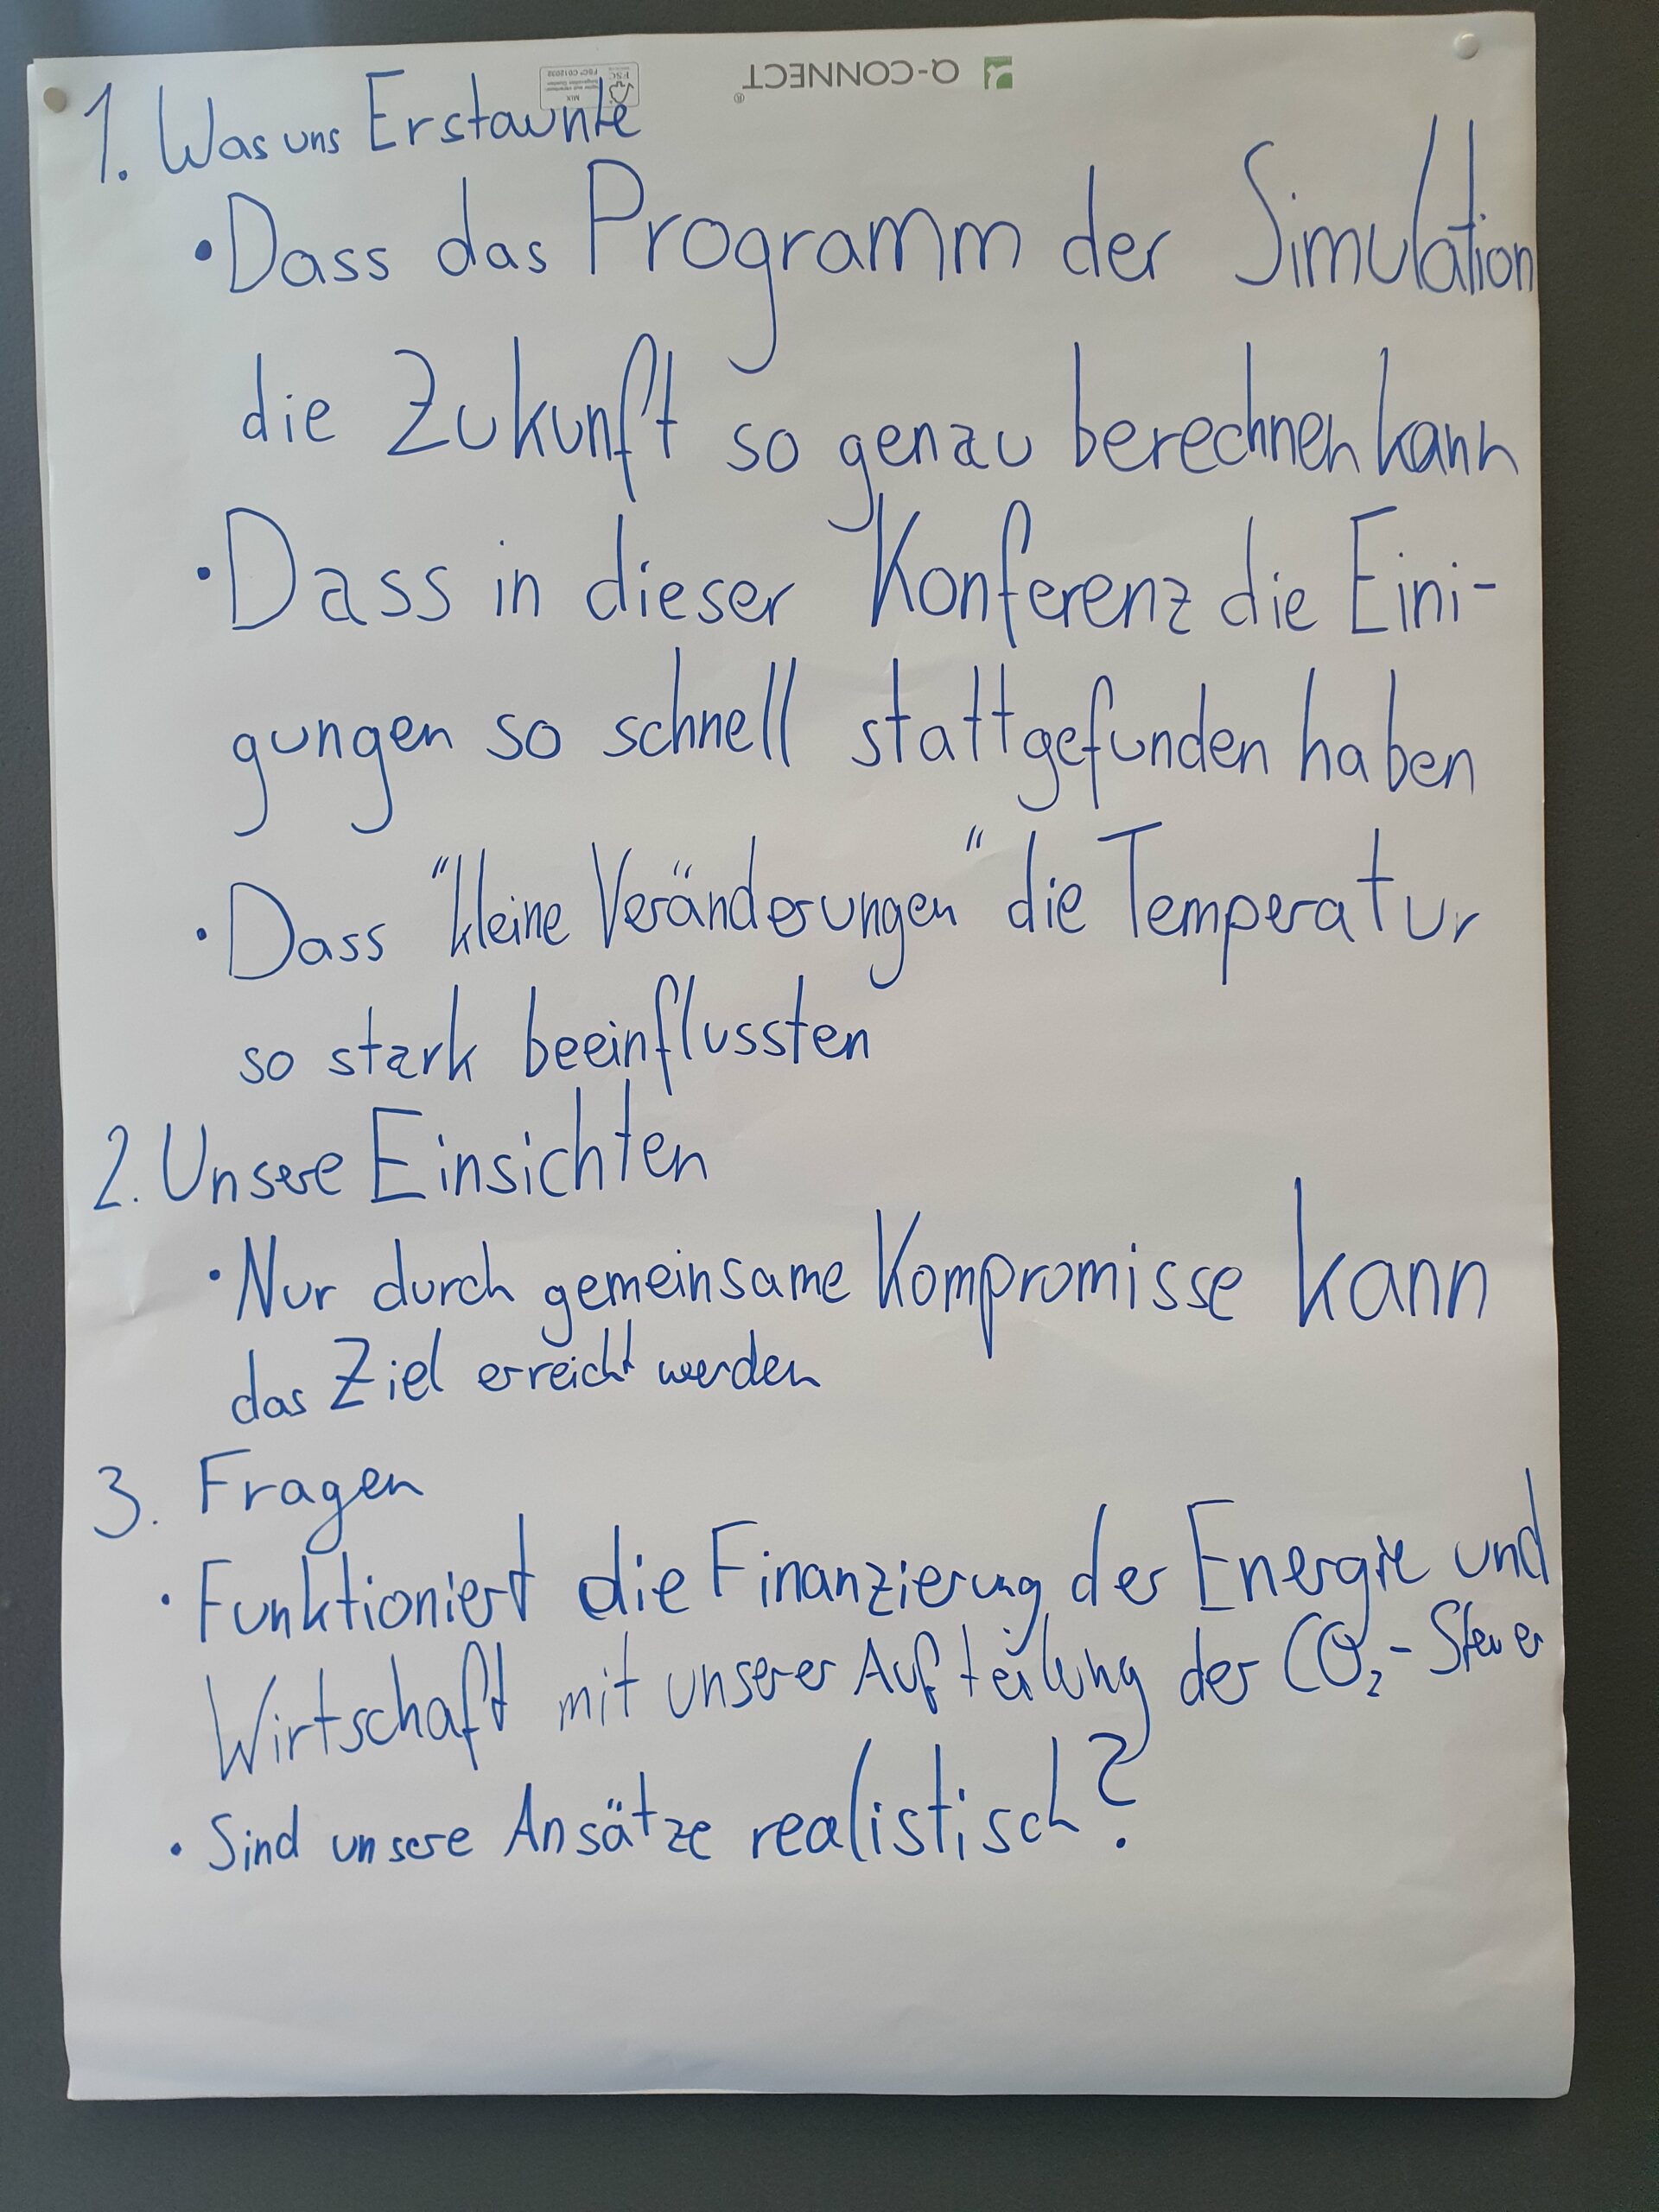 Q-CONNECT
®
FSC
MIX
FSC® C012032
1. Was uns Erstaunte
• Dass das Programm der Simulation
die Zukunft so genau berechnen kann
• Dass in dieser Konferenz die Eini-
gungen so schnell stattgefunden haben
• Dass "kleine Veränderungen" die Temperatur
so stark beeinflussten
2. Unsere Einsichten
• Nur durch gemeinsame Kompromisse kann
das Ziel erreicht werden
3. Fragen
• Funktioniert die Finanzierung der Energie und
Wirtschaft mit unserer Aufteilung der CO₂-Steuer
• Sind unsere Ansätze realistisch?